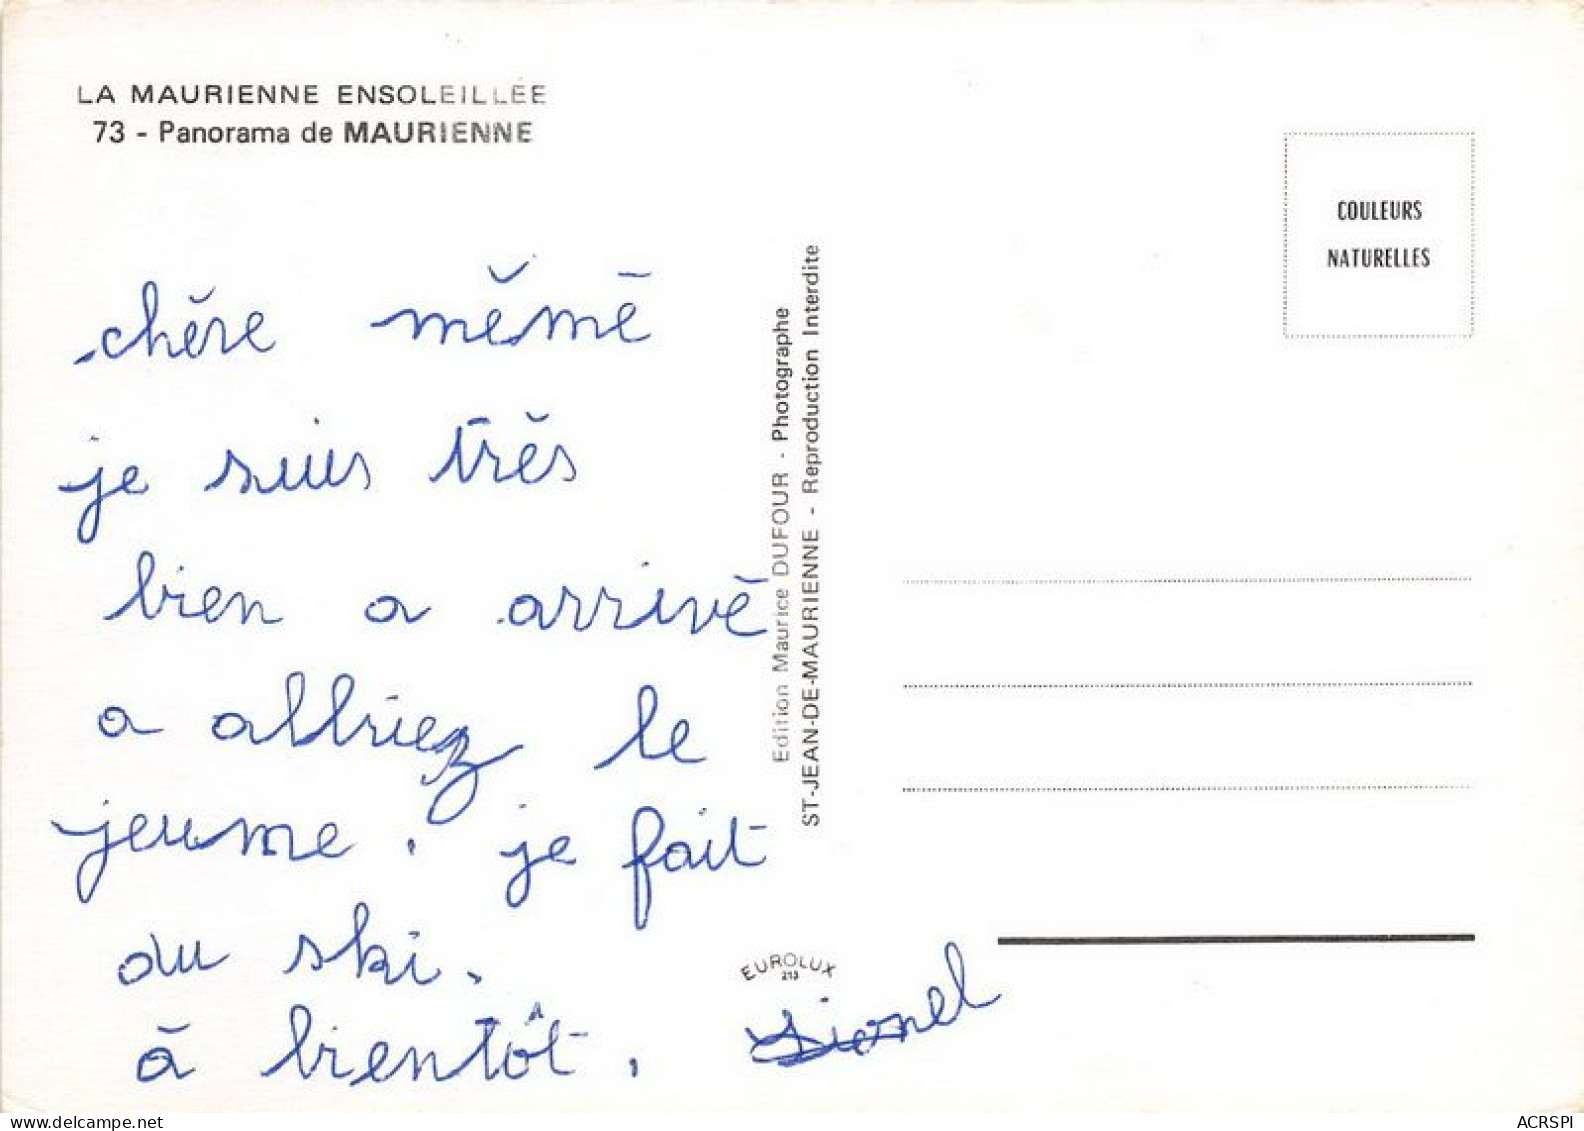 LA MAURIENNE ENSOLEILLÉE
73 - Panorama de MAURIENNE
COULEURS
NATURELLES
chěre měmē
je suis trěs
bien a arrivē
a albiez le
jeume. je fait
du ski.
ā bientôt.
Lionel
Edition Maurice DUFOUR - Photographe
ST-JEAN-DE-MAURIENNE - Reproduction Interdite
EUROLUX
213
www.delcampe.net
ACRSPI